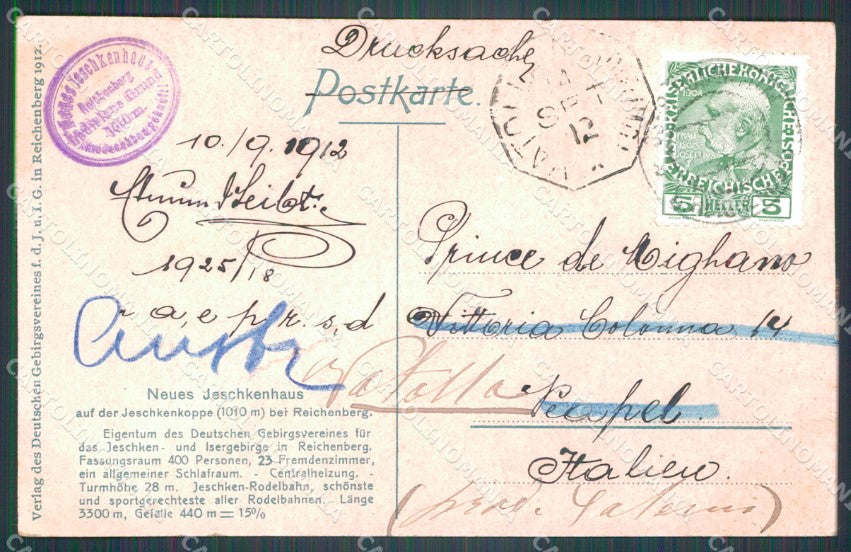 Drucksache
Postkarte.
10./9. 1912
1925/18
r a, e p r. s, d
Austr
Neues Jeschkenhaus
auf der Jeschkenkoppe (1010 m) bei Reichenberg.
Eigentum des Deutschen Gebirgsvereines für
das Jeschken- und Isergebirge in Reichenberg.
Fassungsraum 400 Personen, 23 Fremdenzimmer,
ein allgemeiner Schlafraum. - Centralheizung. -
Turmhöhe 28 m. Jeschken-Rodelbahn, schönste
und sportgerechteste aller Rodelbahnen. Länge
3300 m, Gefälle 440 m = 15%
Verlag des Deutschen Gebirgsvereines f. d. J. u. I. G. in Reichenberg 1912.
Jeschkenhaus
Reichenberg
SET
12
1908
5 HELLER 5
Prince de Mighano
Vittoria Colonna 14
Neapel.
Italien.
CARTOLINOMANIA